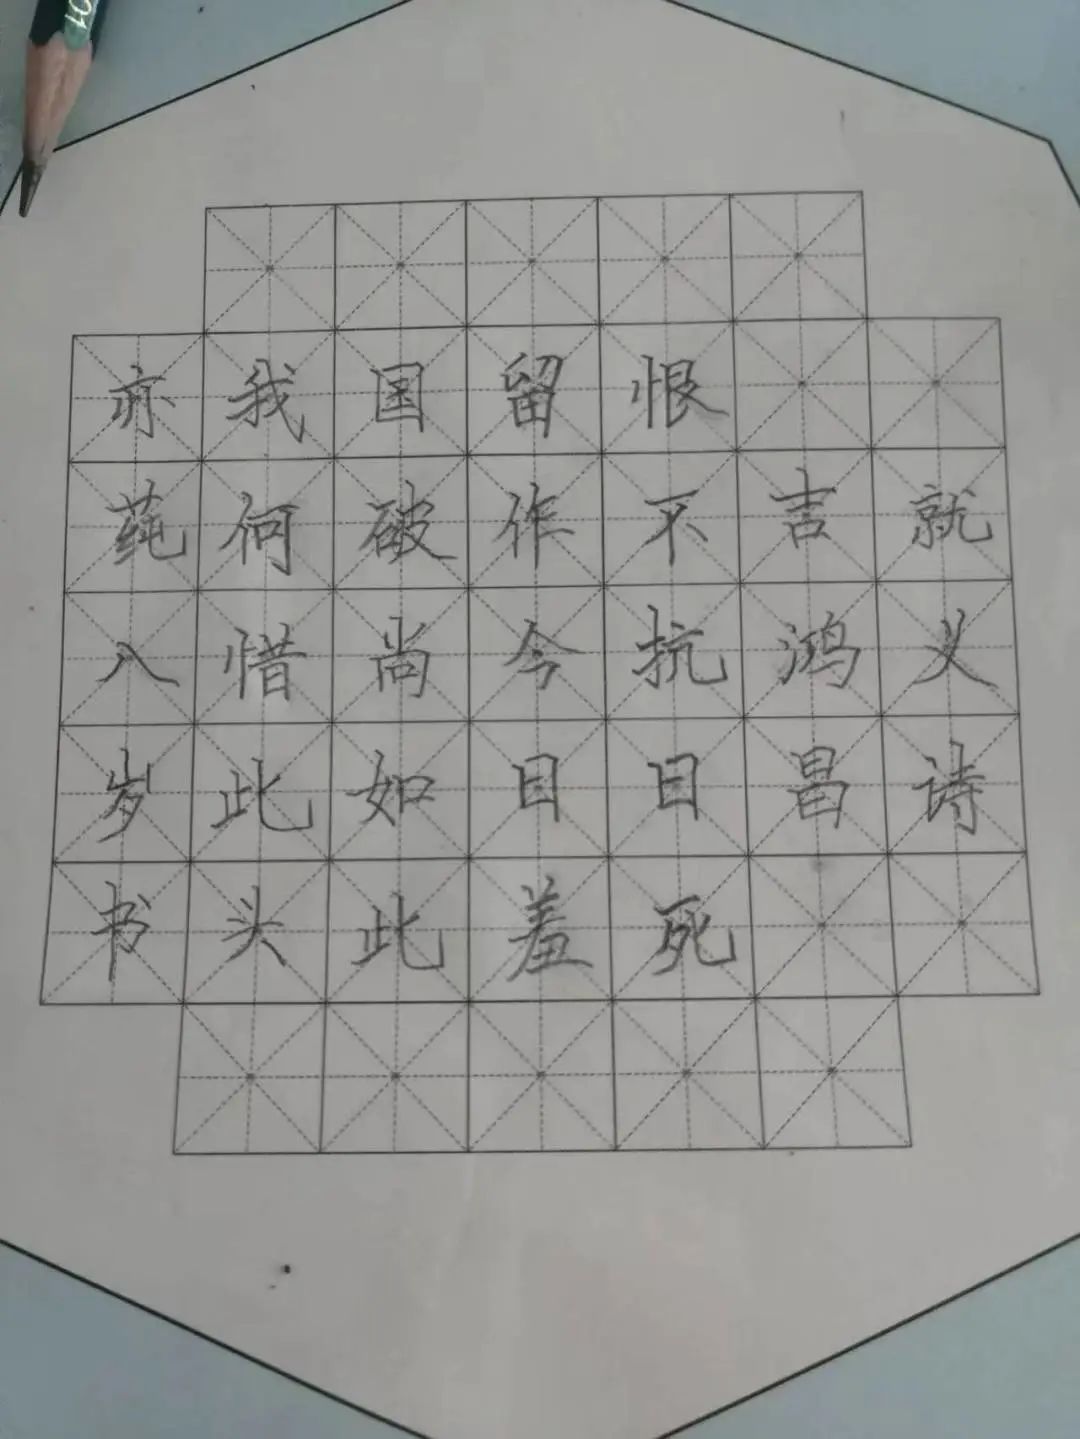 就义诗
吉鸿昌
恨不抗日死
留作今日羞
国破尚如此
我何惜此头
亦莼八岁书
101